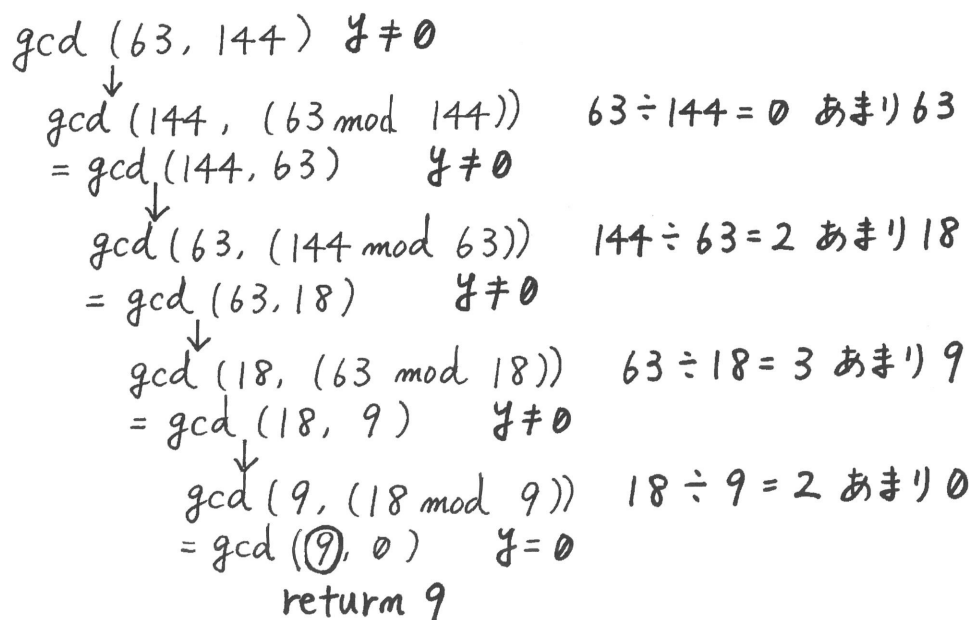 gcd (63, 144) y≠0
↓
gcd (144, (63 mod 144)) 63÷144=0 あまり63
= gcd (144, 63) y≠0
↓
gcd (63, (144 mod 63)) 144÷63=2 あまり18
= gcd (63, 18) y≠0
↓
gcd (18, (63 mod 18)) 63÷18=3 あまり9
= gcd (18, 9) y≠0
↓
gcd (9, (18 mod 9)) 18÷9=2 あまり0
= gcd (9, 0) y=0
return 9